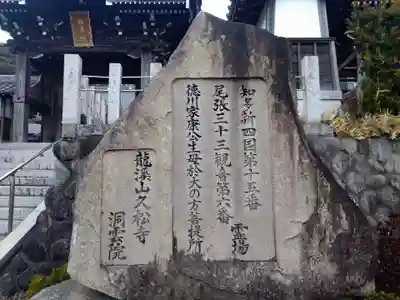 知多新四国第十五番
尾張三十三観音第六番
霊場
徳川家康公生母於大の方菩提所
龍溪山久松寺
洞雲院